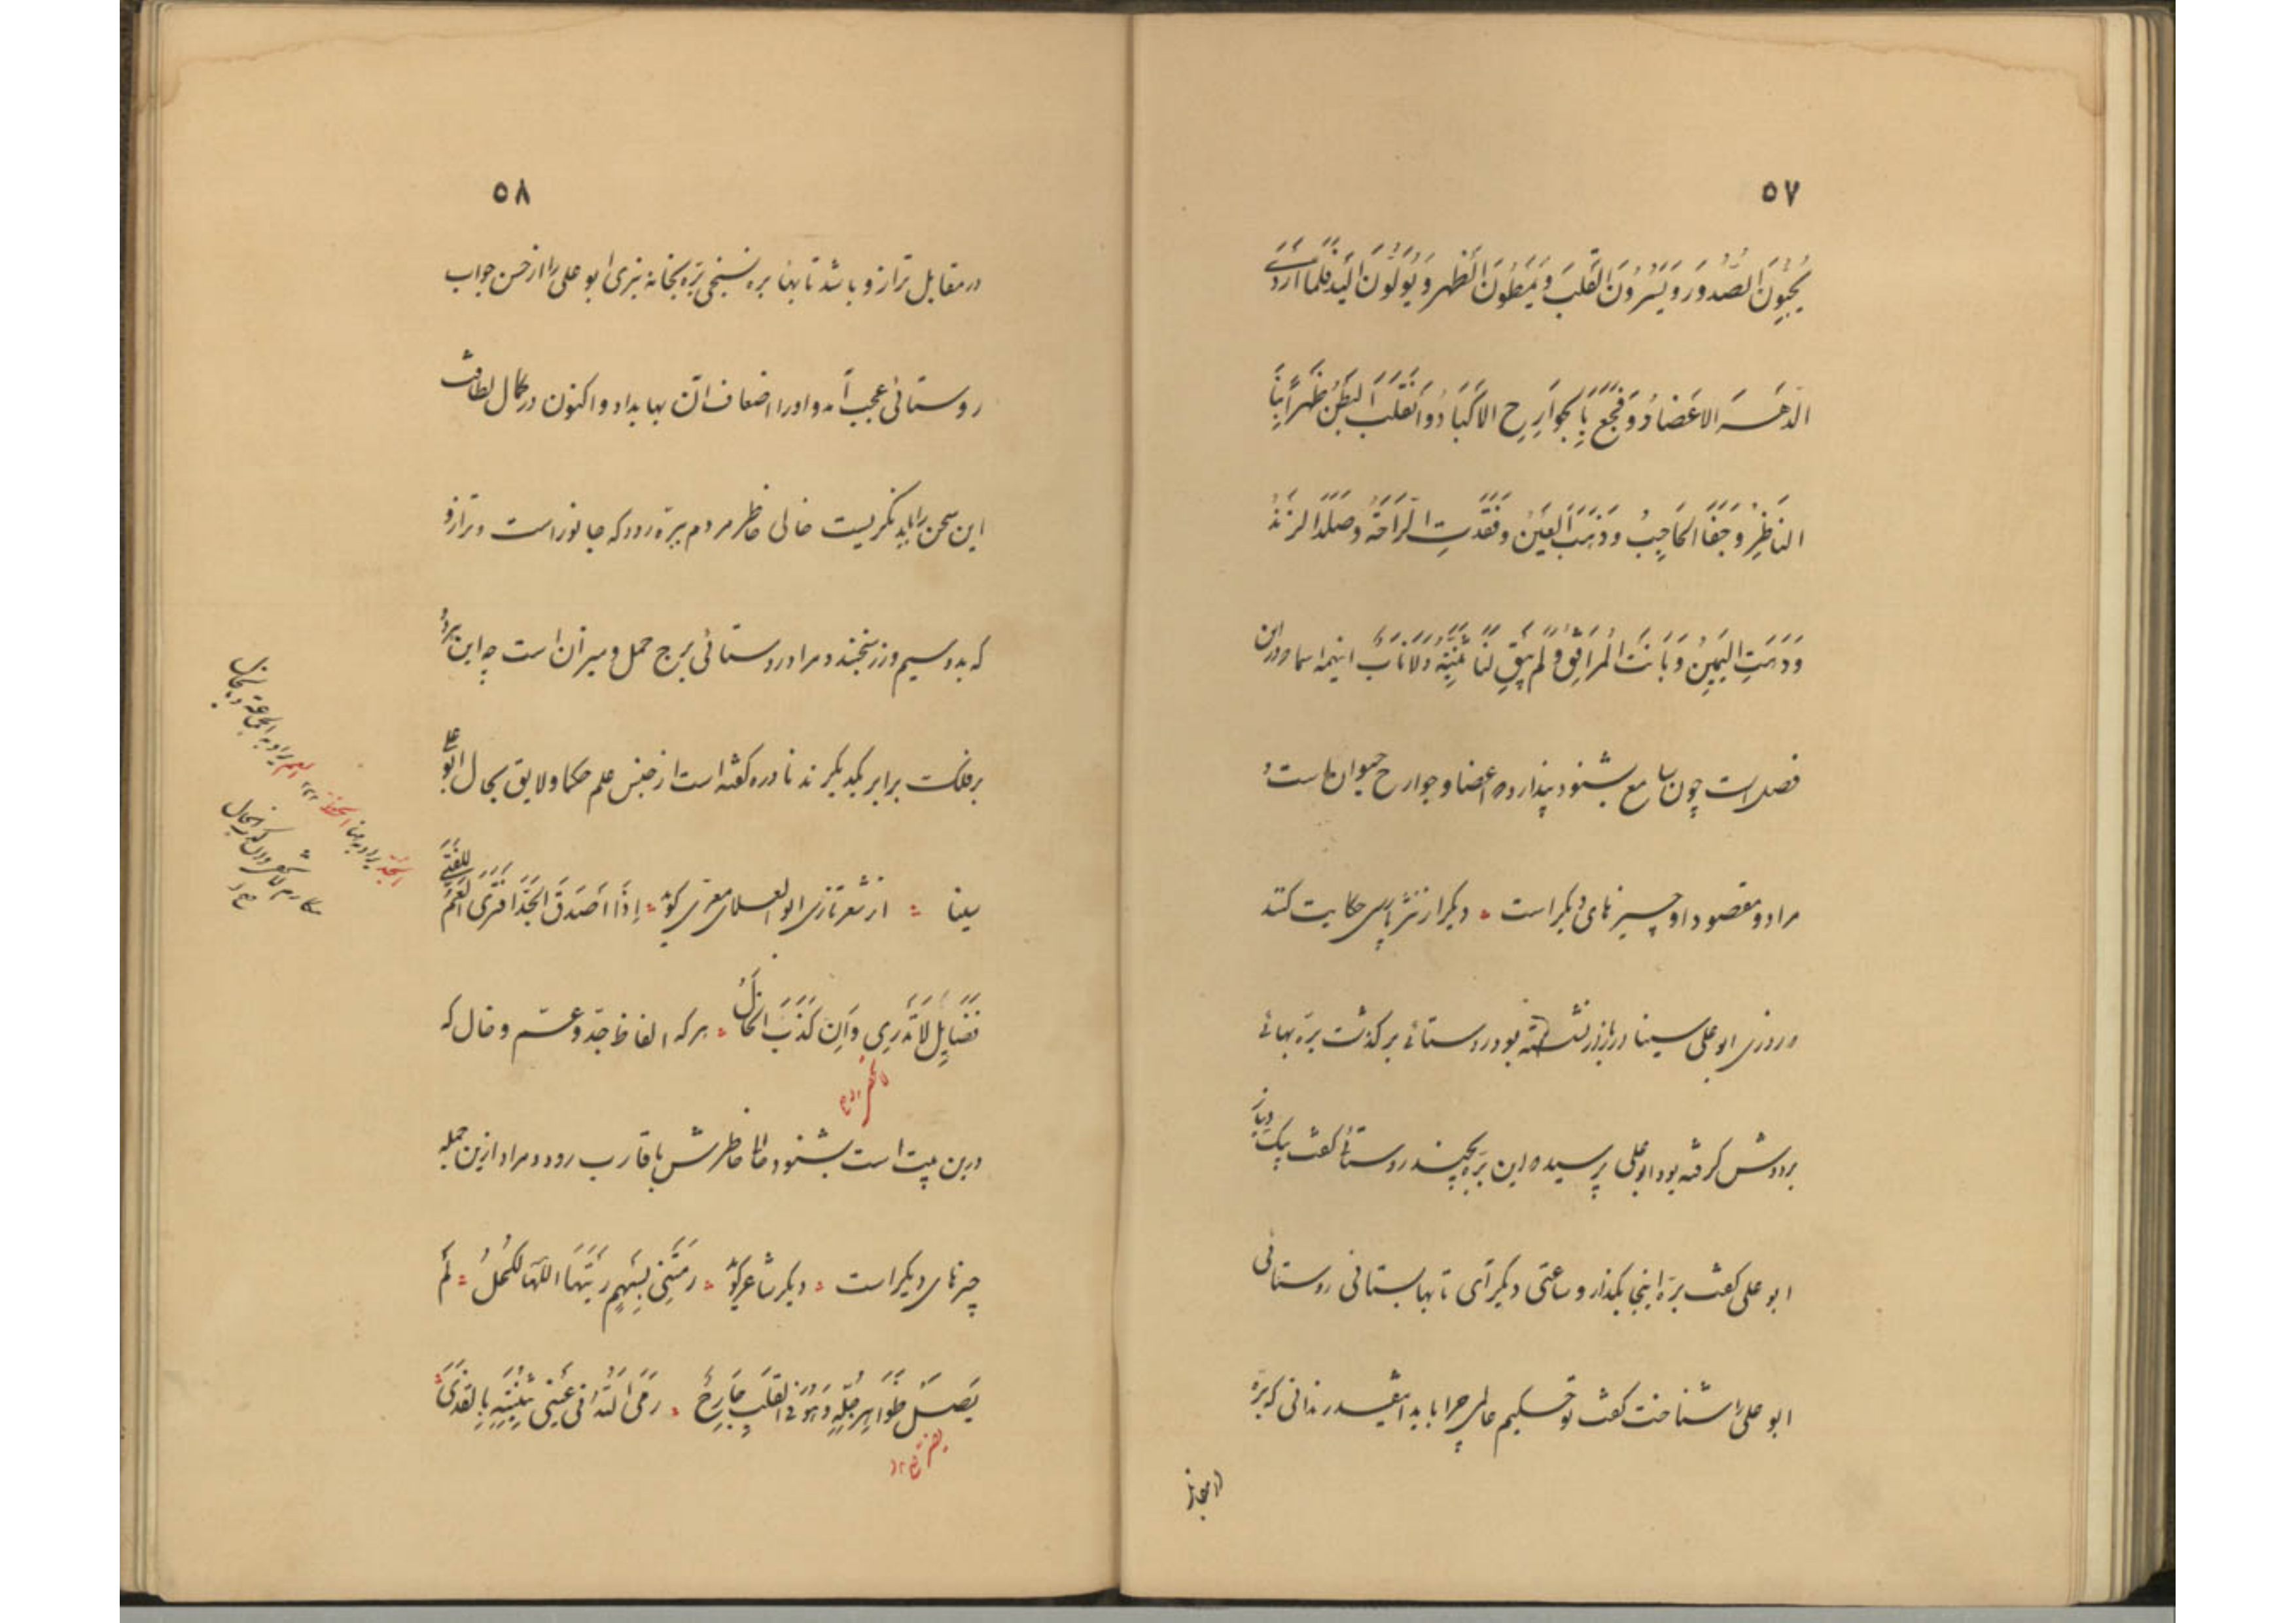 ۵۷
یُجِیبُونَ الصُّدُورَ وَیَسُرُّونَ القَلبَ وَیُمَطُونَ الظَّهرَ وَیُولُونَ الیَدَ فَلَمَّا اَرَدَے
الدَّهرُ الاَعضَادُ وَفَجَعَ بِالجَوَارِحِ الاَکبَادُ وَانقَلَبَ البَطنُ ظَهراً بِنَا
النَاظِرُ وَجَفَا الحَاجِبُ وَذَهَبَ العَینُ وَفَقَدتِ الرَّاحَةُ وَصَلَدَ الزَندُ
وَذَهَبَتِ الیَمِینُ وَبَانَتِ المَرَافِقُ وَلَم یَبقِ لَنَا ثَنِیَّةٌ وَلَا نَابٌ اینهمه اسما درین
فصل است چون سامع بشنود پندارد که اعضا و جوارح حیوان است و
مراد و مقصود او چیزهای دیگر است ؞ دیگر از نثر پارسی حکایت کنند
روزی ابو علی سینا در بازار نشسته بود روستائی برگذشت برّه بهائی
بر دوش گرفته بود ابو علی پرسید که این برّه بچند روستائی گفت بیک دینار
ابو علی گفت برّه اینجا بگذار و ساعتی دیگر آی تا بها بستانی روستائی
ابو علی را شناخت گفت تو حکیم عالمی چرا باید اینقدر ندانی که برّه
در مقابل
۵۸
در مقابل ترازو باشد تا بها بره نسنجی برّه بخانه نبری ابو علی را از حسن جواب
روستائی عجب آمد و او را اضعاف آن بها بداد و اکنون در کمال لطافت
این سخن را باید نگریست خالی خاطر مردم ببرّه رود که جانور است و ترازو
که بدو سیم و زر سنجند و مراد روستائی برج حمل و میزان است چه این هر دو
بر فلک برابر یکدیگرند نادره گفته است از جنس علم حکما و لایق بحال ابو علی
سینا ؞ از شعر تازی ابو العلای معرّی گوید ؞ اِذَا اَصدَقَ الجَدُّ افتَرَی العَمُّ لِلفَتَی
فَضَایِلَ لَا تَدرِی وَاِن کَذَبَ الخَالُ ؞ هر که الفاظ جدّ و عمّ و خال که
درین بیت است بشنود حالی خاطرش باقارب رود و مراد ازین جمله
چیزهای دیگر است ؞ دیگر شاعر گوید ؞ رَمَتنِی بِسَهمٍ رِیشُهَا الکُحلُ ؞ لَم
یَصِل ظَوَاهِرَ جِلدٍ وَهُوَ فِی القَلبِ جَارِحٌ ؞ رَمَی اللهُ فِی عَینَی بُثَینَةَ بِالقَذَی